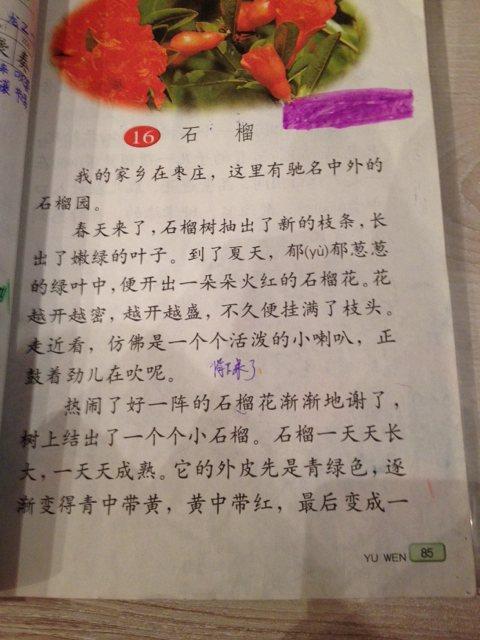 16 石 榴
我的家乡在枣庄，这里有驰名中外的
石榴园。
春天来了，石榴树抽出了新的枝条，长
出了嫩绿的叶子。到了夏天，郁(yù)郁葱葱
的绿叶中，便开出一朵朵火红的石榴花。花
越开越密，越开越盛，不久便挂满了枝头。
走近看，仿佛是一个个活泼的小喇叭，正
鼓着劲儿在吹呢。
热闹了好一阵的石榴花渐渐地谢了，
树上结出了一个个小石榴。石榴一天天长
大，一天天成熟。它的外皮先是青绿色，逐
渐变得青中带黄，黄中带红，最后变成一
YU WEN 85